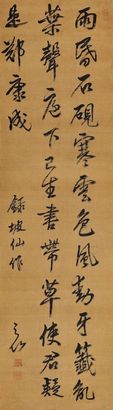 雨昏石硯寒雲色風動牙籤亂
葉聲庭下已生書帶草使君疑
是鄭康成
錄坡仙作
之鼎